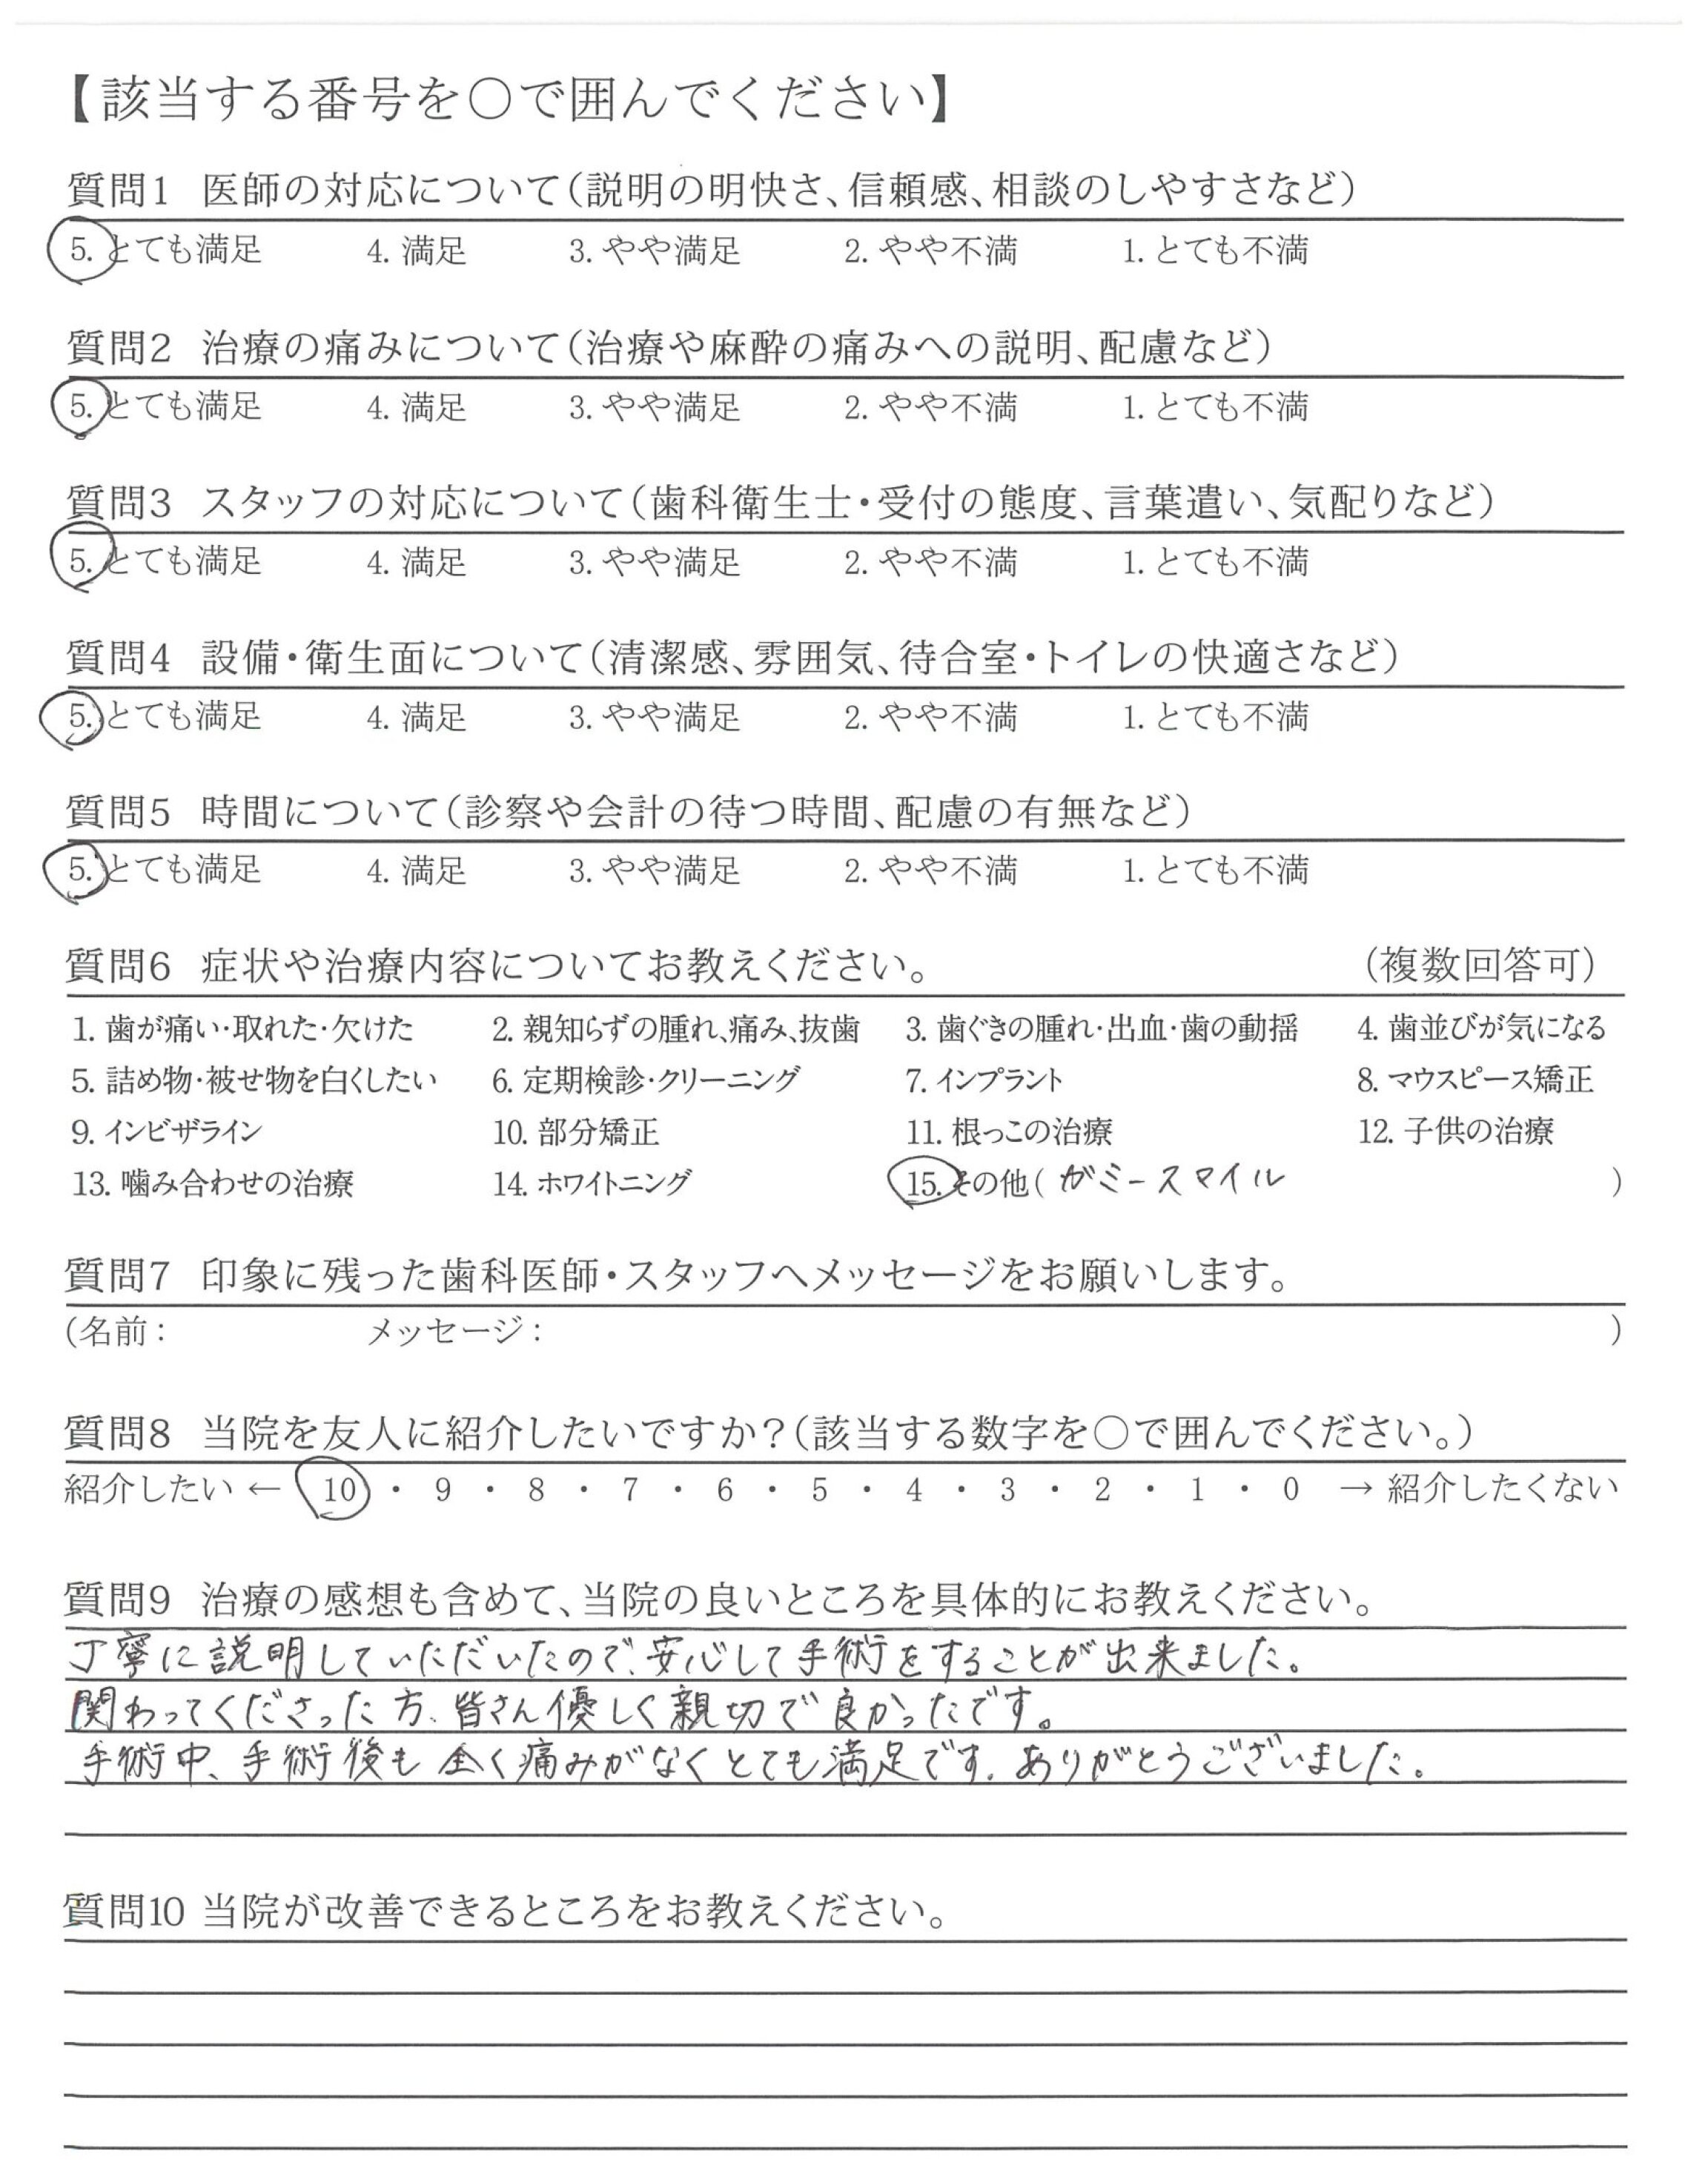 【該当する番号を○で囲んでください】
質問1 医師の対応について(説明の明快さ、信頼感、相談のしやすさなど)
5. とても満足 4. 満足 3. やや満足 2. やや不満 1. とても不満
質問2 治療の痛みについて(治療や麻酔の痛みへの説明、配慮など)
5. とても満足 4. 満足 3. やや満足 2. やや不満 1. とても不満
質問3 スタッフの対応について(歯科衛生士・受付の態度、言葉遣い、気配りなど)
5. とても満足 4. 満足 3. やや満足 2. やや不満 1. とても不満
質問4 設備・衛生面について(清潔感、雰囲気、待合室・トイレの快適さなど)
5. とても満足 4. 満足 3. やや満足 2. やや不満 1. とても不満
質問5 時間について(診察や会計の待つ時間、配慮の有無など)
5. とても満足 4. 満足 3. やや満足 2. やや不満 1. とても不満
質問6 症状や治療内容についてお教えください。 (複数回答可)
1. 歯が痛い・取れた・欠けた 2. 親知らずの腫れ、痛み、抜歯 3. 歯ぐきの腫れ・出血・歯の動揺 4. 歯並びが気になる
5. 詰め物・被せ物を白くしたい 6. 定期検診・クリーニング 7. インプラント 8. マウスピース矯正
9. インビザライン 10. 部分矯正 11. 根っこの治療 12. 子供の治療
13. 噛み合わせの治療 14. ホワイトニング 15. その他( ガミースマイル )
質問7 印象に残った歯科医師・スタッフへメッセージをお願いします。
(名前: メッセージ: )
質問8 当院を友人に紹介したいですか?(該当する数字を○で囲んでください。)
紹介したい ← 10 ・ 9 ・ 8 ・ 7 ・ 6 ・ 5 ・ 4 ・ 3 ・ 2 ・ 1 ・ 0 → 紹介したくない
質問9 治療の感想も含めて、当院の良いところを具体的にお教えください。
丁寧に説明していただいたので、安心して手術をすることが出来ました。
関わってくださった方、皆さん優しく親切で良かったです。
手術中、手術後も全く痛みがなくとても満足です。ありがとうございました。
質問10 当院が改善できるところをお教えください。